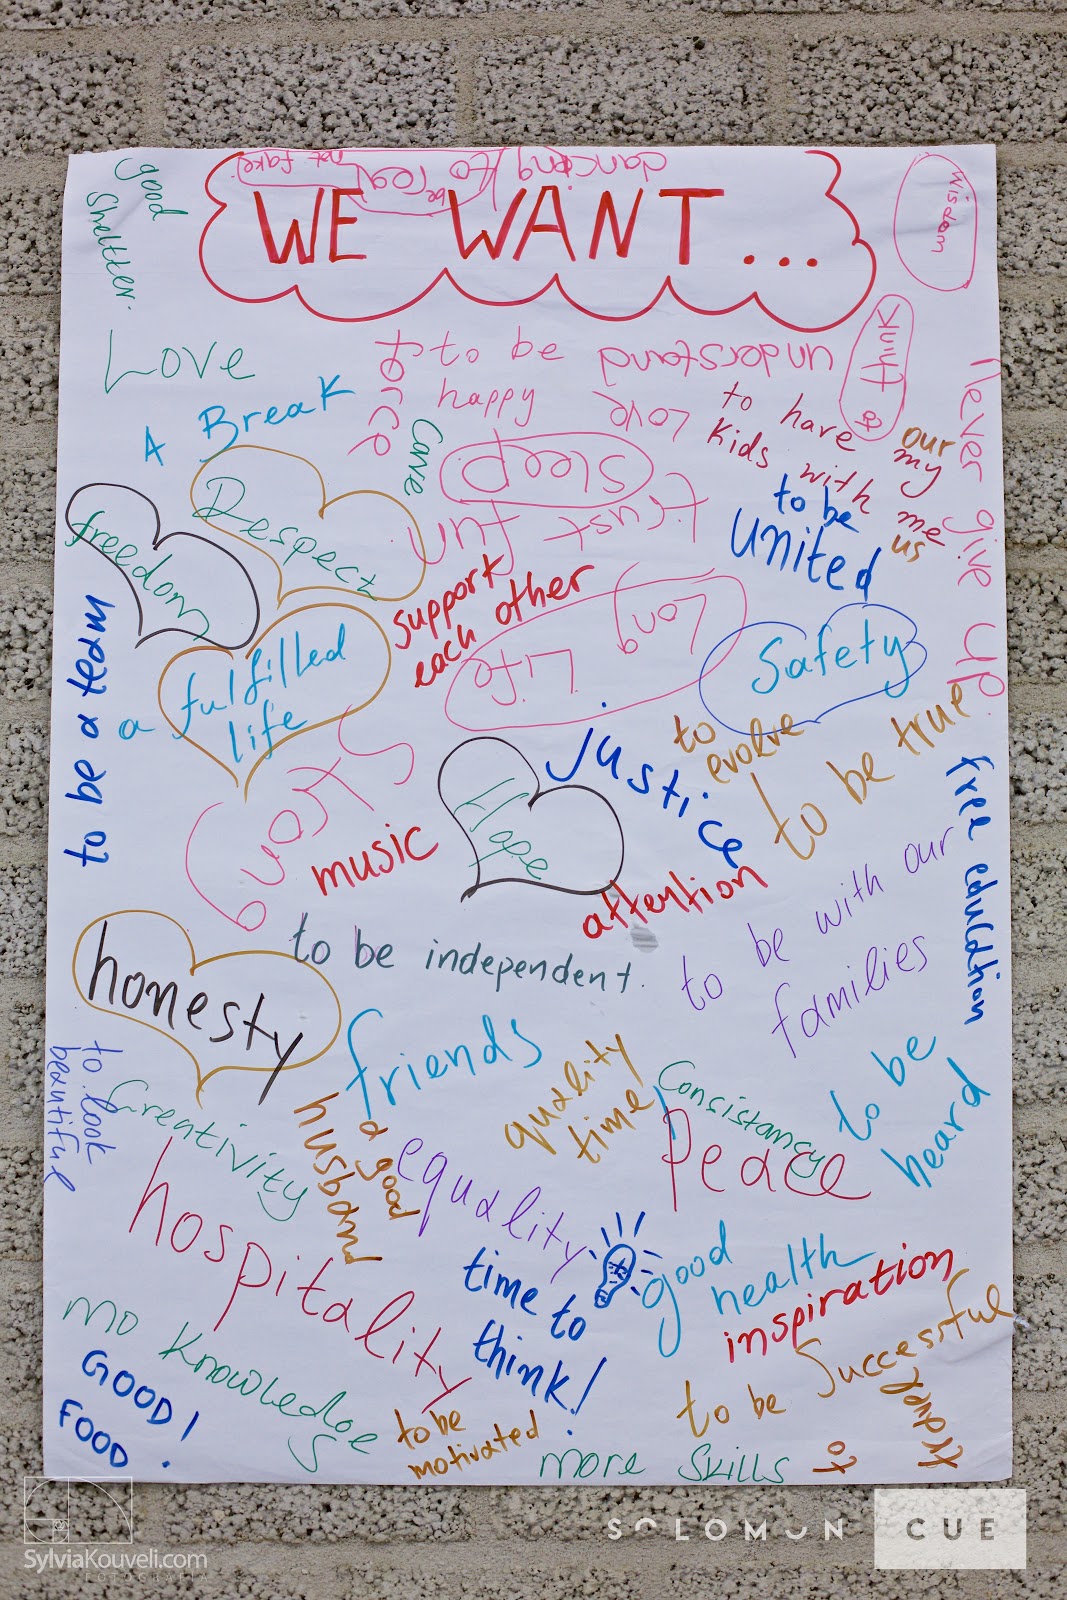 dancing
to
be real
not fake
WE WANT...
good
Sheltter.
Wisdom
Love
A Break
to be
happy
understand
think
Love
to have
kids with me
our
my
us
Never give up
Sleep
trust
fun
to be
united
freedom
Despect
support
each other
Long
Life
Safety
to be a team
a fulfilled
life
Strong
music
Hope
justice
to
evolve
to be true
free education
attention
to be independent.
to be with our
families
honesty
friends
quality
time
Consistancy
Peace
to be
heard
to look
beautiful
Creativity
a good
husband
equality
hospitality
time to
think!
good
health
inspiration
mo Knowledge
GOOD!
FOOD.
to be
motivated
to be Successful
to
travel
more Skills
SylviaKouveli.com
FOTOGRAFIA
SOLOMON CUE